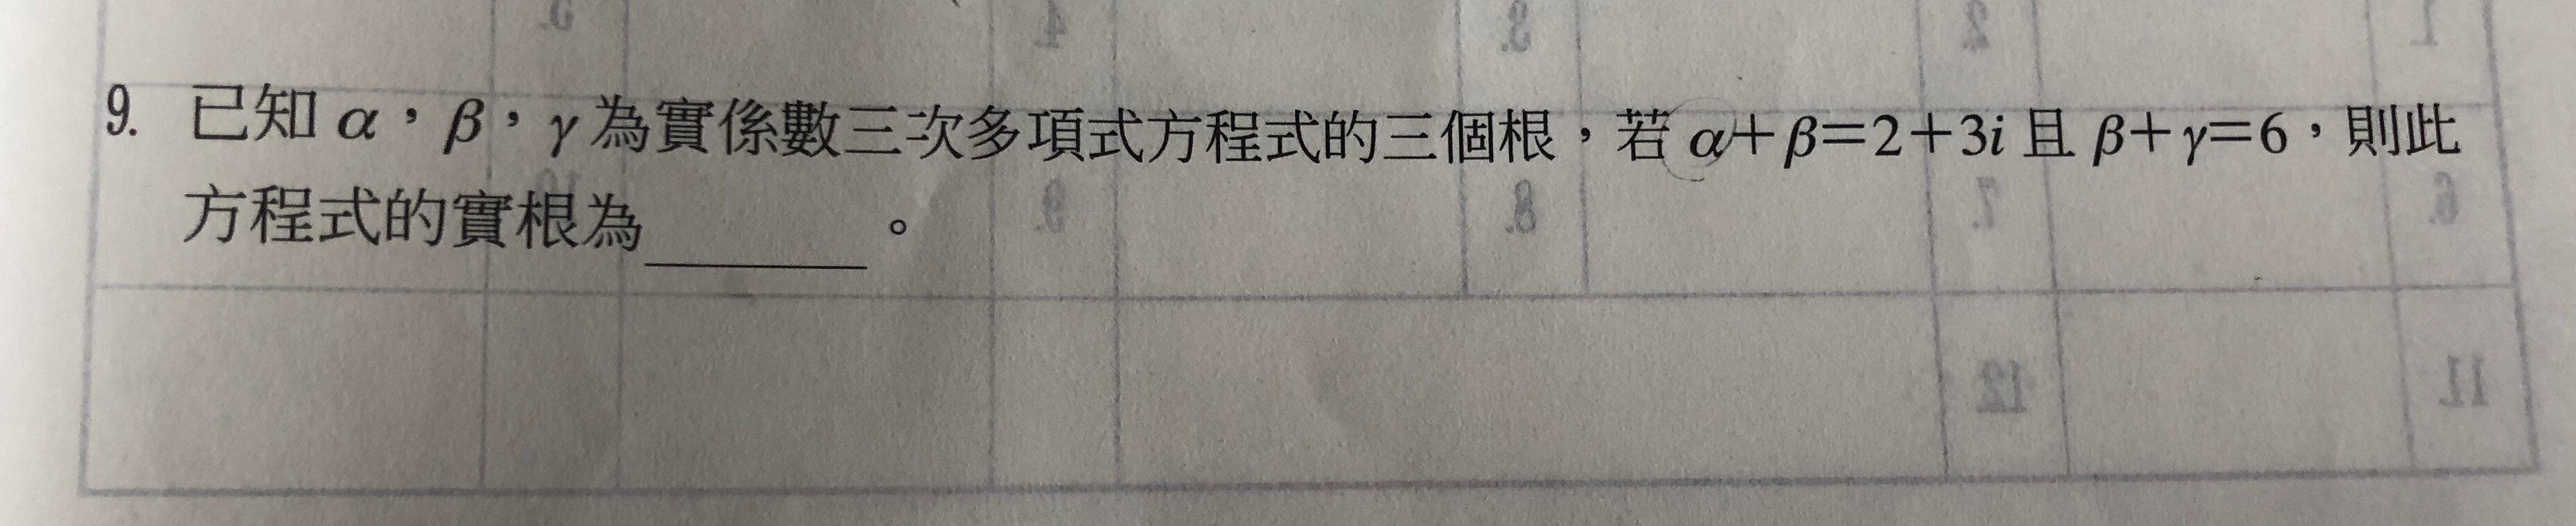 9. 已知 α，β，γ 為實係數三次多項式方程式的三個根，若 α＋β＝2＋3i 且 β＋γ＝6，則此
方程式的實根為______。